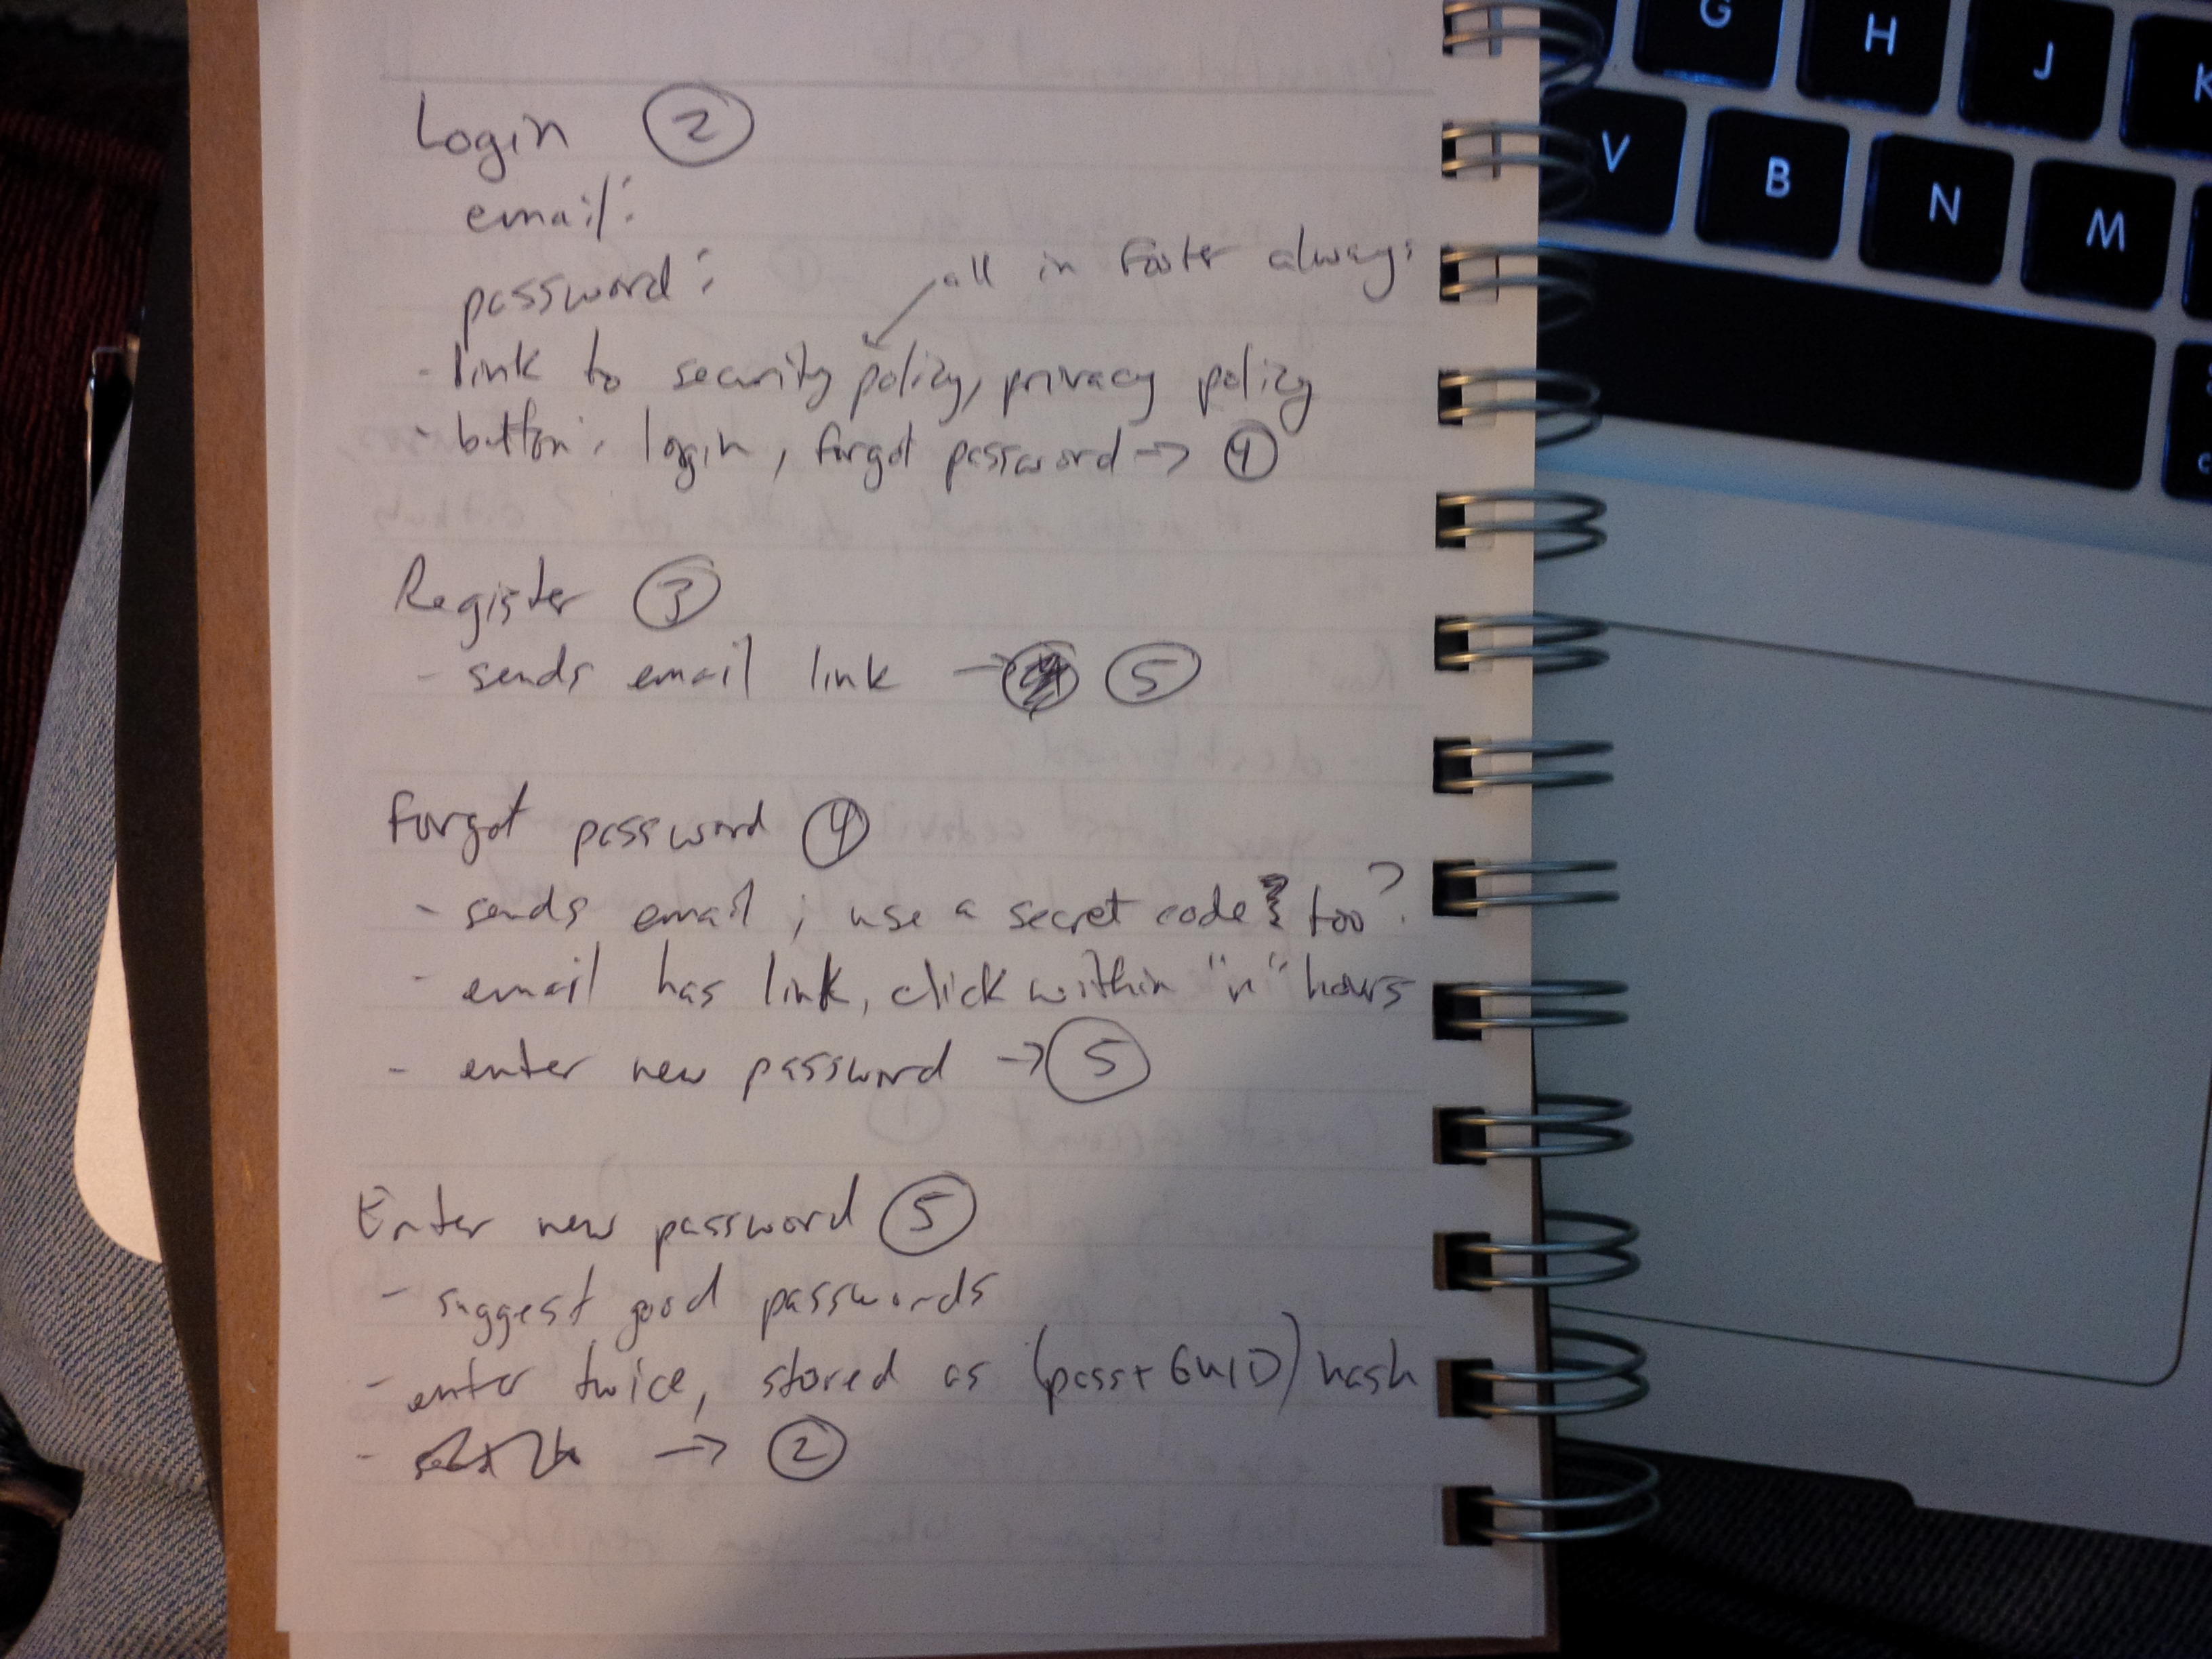 Login 2
email:
password:
all in footer always
- link to security policy, privacy policy
- button: login, forgot password -> 4
Register 3
- sends email link -> 5
Forgot password 4
- sends email; use a secret code too?
- email has link, click within "n" hours
- enter new password -> 5
Enter new password 5
- suggest good passwords
- enter twice, stored as (pass+GUID) hash
- -> 2
G H J K
V B N M